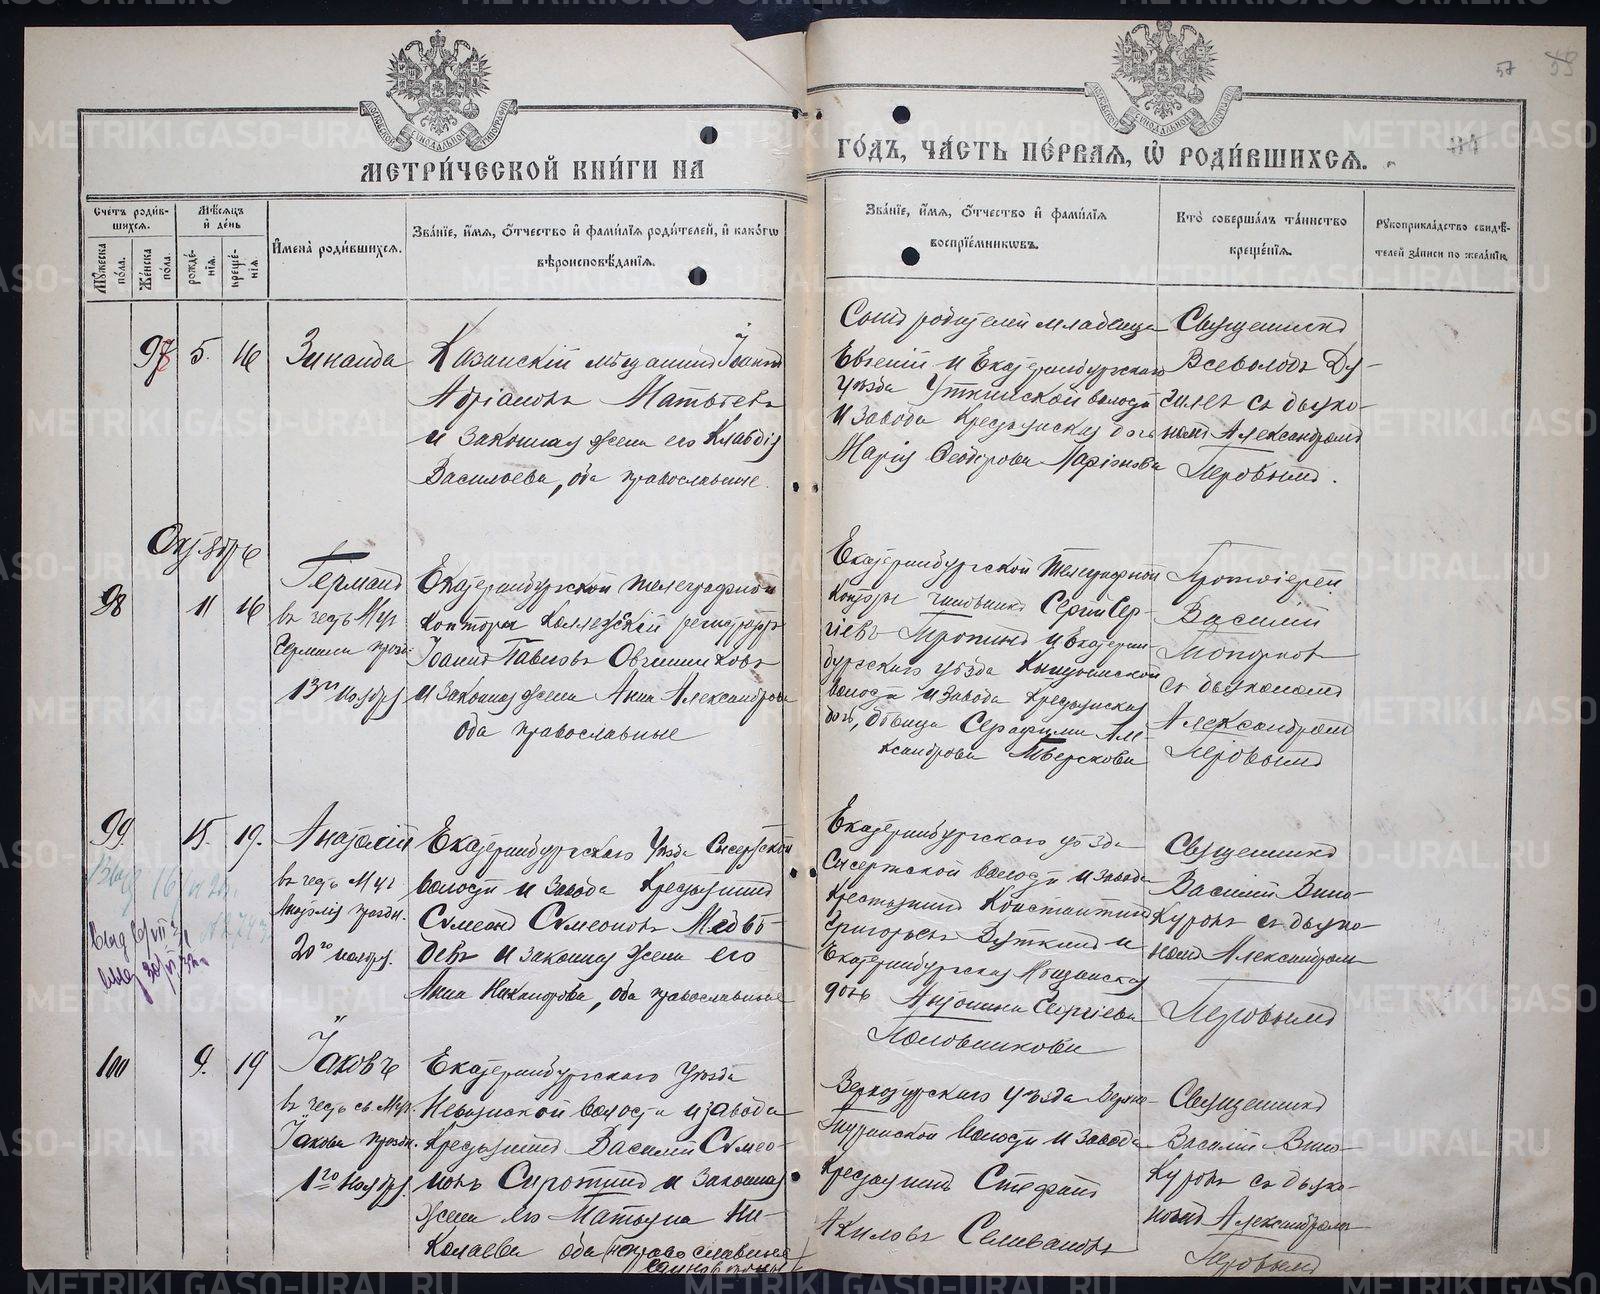 57
МЕТРИ́ЧЕСКОЙ КНИ́ГИ НА ГО́ДЪ, ЧА́СТЬ ПЕ́РВАЯ, Ѡ҆ РОДИ́ВШИХСЯ.
Сче́тъ роди́в-
шихся.
Мѣ́сяцъ
и҆ де́нь
Му́жеска по́ла.
Же́нска по́ла.
рожде́-
нїѧ.
креще́-
нїѧ.
И҆мена̀ роди́вшихся.
Зва́нїе, и҆́мя, ѻ҆́тчество и҆ фами́лїя роди́телей, и҆ како́гѡ
вѣроисповѣ́данїѧ.
Зва́нїе, и҆́мя, ѻ҆́тчество и҆ фами́лїя
воспрїе́мникѡвъ.
Кто̀ соверша́лъ та́инство
креще́нїѧ.
Рꙋкоприкла́дство свидѣ́-
телей за́писи по жела́нїю
97 5. 16 Зинаида
Казанскій мѣщанинъ Іоаннъ
Адріановъ Матвѣевъ
и законная жена его Клавдія
Васильева, оба православные.
Сынъ родителей младенца
Евгеній и Екатеринбургскаго
уѣзда Уткинской волости
и завода крестьянская дочь
Марія Ѳеодорова Ларіонова
Священникъ
Всеволодъ
съ діако-
номъ Александромъ
Перовымъ.
Октябрь
98 11 16 Германъ
въ честь Муч.
Германа празд.
13го ноября
Екатеринбургской телеграфной
конторы Коллежскій регистраторъ
Іоаннъ Павловъ Овчинниковъ
и законная жена Анна Александрова
оба православные
Екатеринбургской Телеграфной
Конторы чиновникъ Сергій Сер-
гіевъ Тропинъ и Екатерин-
бургскаго уѣзда Кыштымской
волости и завода крестьянская
дочь, дѣвица Серафима Але-
ксандрова Тверскова
Протоіерей
Василій
Топорковъ
съ діакономъ
Александромъ
Перовымъ
99. 15. 19. Анатолій
въ честь Муч.
Анатолія праздн.
20го ноября.
Екатеринбургскаго Уѣзда Сысертской
волости и завода Крестьянинъ
Сѵмеонъ Сѵмеоновъ Медвѣ-
девъ и законная жена его
Анна Никандрова, оба православные
Екатеринбургскаго уѣзда
Сысертской волости и завода
Крестьянинъ Константинъ
Григорьевъ и
Екатеринбургская Мѣщанская
дочь Антонина Сергіева
Половникова
Священникъ
Василій Вино-
куровъ съ діако-
номъ Александромъ
Перовымъ
100 9. 19 Іаковъ
въ честь св. Муч.
Іакова праздн.
1го Ноября.
Екатеринбургскаго Уѣзда
Невьянской волости и завода
Крестьянинъ Василій Сѵмео-
новъ Сиротинъ и законная
жена его Матрона Ни-
колаева оба (неправославные
единовѣрцы)
Верхотурскаго уѣзда Верхне-
Туринской волости и завода
Крестьянинъ Стефанъ
Акиловъ Селивановъ
Священникъ
Василій Вино-
куровъ съ діако-
номъ Александромъ
Перовымъ
METRIKI.GASO-URAL.RU